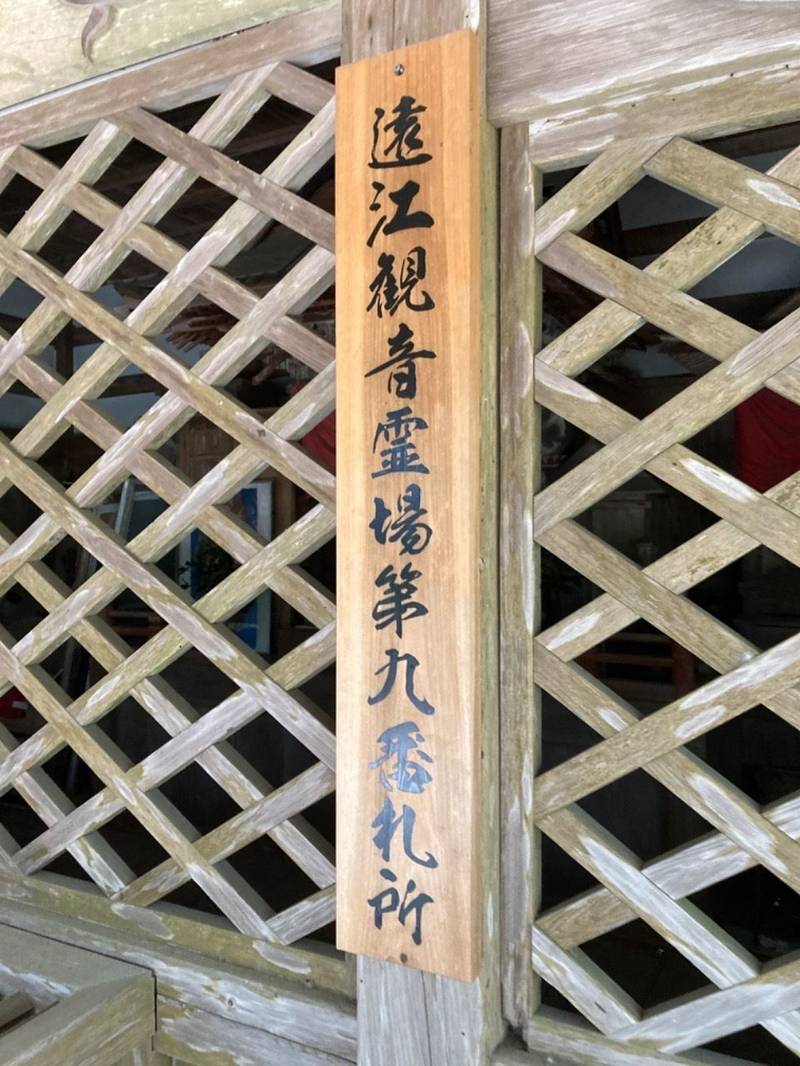 遠江観音霊場第九番札所